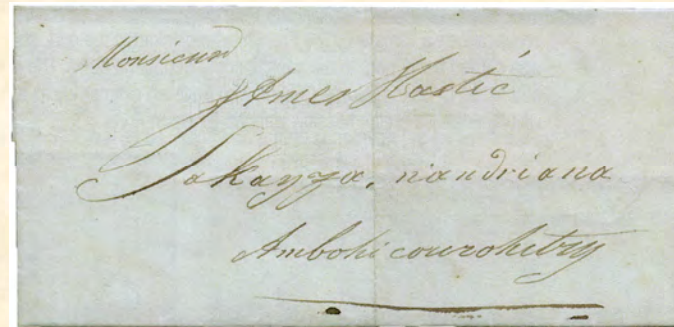 Monsieur
James Hastié
Sakayza, n'andriana
Ambohi courohitry